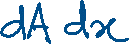 dA dx